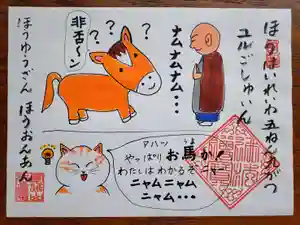 ほうはいれいわ五ねん九がつ
ユルごしゅいん
ナムナムナム・・・
? ? ?
非否〜ン
ほうゆうざん ほうおんあん
アハッ
やっぱりお馬か!
うま
わたしはわかるぞニャー
ニャムニャム
ニャム・・・